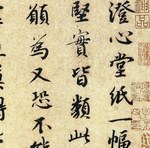 澄心堂紙一幅
堅實皆類此
願為又恐不能
莫得